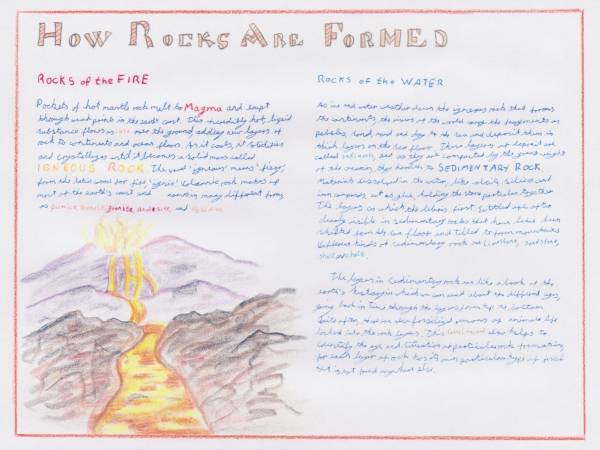 HOW ROCKS ARE FORMED
ROCKS of the FIRE
Pockets of hot mantle rock melt to Magma and erupt
through weak points in the earth's crust. This incredibly hot, liquid
substance flows as lava over the ground, adding new layers of
rock to continents and ocean floors. As it cools, it solidifies
and crystallizes until it becomes a solid mass called
IGNEOUS ROCK. The word 'igneous' means 'fiery',
from the latin word for fire, 'ignis'. Volcanic rock makes up
most of the earth's crust and many different forms
as pumice, basalt, granite, andesite, and obsidian
ROCKS of the WATER
As ice and water weather down the igneous rocks that form
the continents, the rivers of the world carry the fragments as
pebbles, sand, mud and clay to the sea and deposit them in
thick layers on the sea floor. These layers of deposit are
called sediments, and as they are compacted by the great weight
of the ocean, they harden to SEDIMENTARY ROCK.
Materials dissolved in the water, like calcite, silica and
iron compounds, act as glue, holding the stone particles together.
The layers in which the debris first settled are often
clearly visible in sedimentary rocks that have been
uplifted from the sea floor and tilted to form mountains.
Different kinds of sedimentary rock are limestone, sandstone,
shale
The layers in sedimentary rock are like a book of the
earth's which we can read about the different ages,
going back in time through the layers from top to bottom.
Quite often, there are even fossilized remains of animal life
locked into the rock layers. This record also helps to
identify the age and of particular rock formations,
for each layer of rock has its own particular type of fossil
that is not found anywhere else.